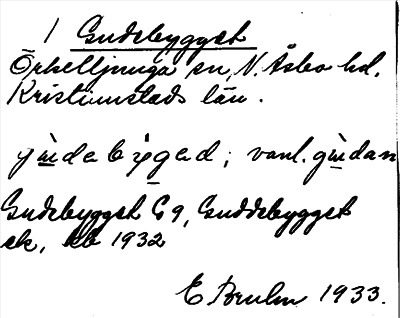 1 Gudebygget
Örkelljunga sn, N. Åsbo hd.
Kristianstads län.
; vanl.
Gudebygget E 9, Guddebygget
ek, kb 1932
E Bruhn 1933.